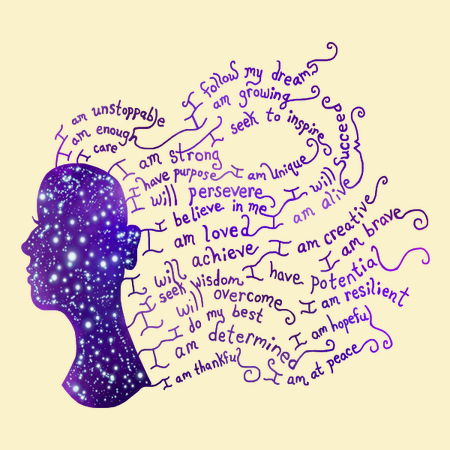 I follow my dreams
I am growing
I am unstoppable
I am enough
I care
I seek to inspire
I will succeed
I am strong
I have purpose
I am unique
I will persevere
I believe in me
I am alive
I am loved
I achieve
I am creative
I am brave
I will
I have potential
I seek wisdom
I will overcome
I am resilient
I do my best
I am hopeful
I am determined
I am at peace
I am thankful